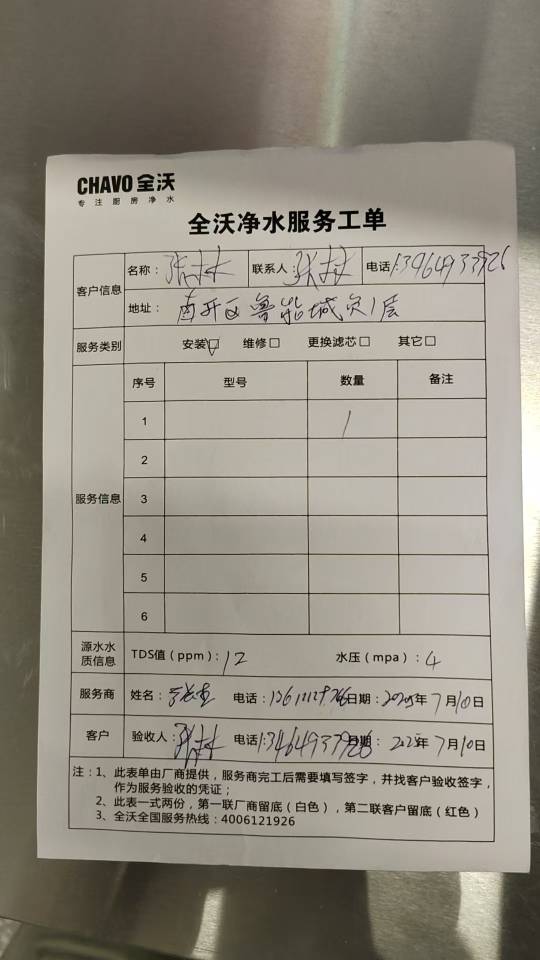 CHAVO 全沃
专注厨房净水
全沃净水服务工单
客户信息 名称: 张林 联系人: 张林 电话:13464933926
地址: 南开区鲁能城负1层
服务类别 安装☑ 维修□ 更换滤芯□ 其它□
服务信息 序号 型号 数量 备注
1 1
2
3
4
5
6
源水水质信息 TDS值(ppm): 12 水压(mpa): 4
服务商 姓名: 电话: 日期: 2025年7月10日
客户 验收人: 张林 电话:13464933926 日期: 2025年7月10日
注:1、此表单由厂商提供,服务商完工后需要填写签字,并找客户验收签字,
作为服务验收的凭证;
2、此表一式两份,第一联厂商留底(白色),第二联客户留底(红色)
3、全沃全国服务热线:4006121926